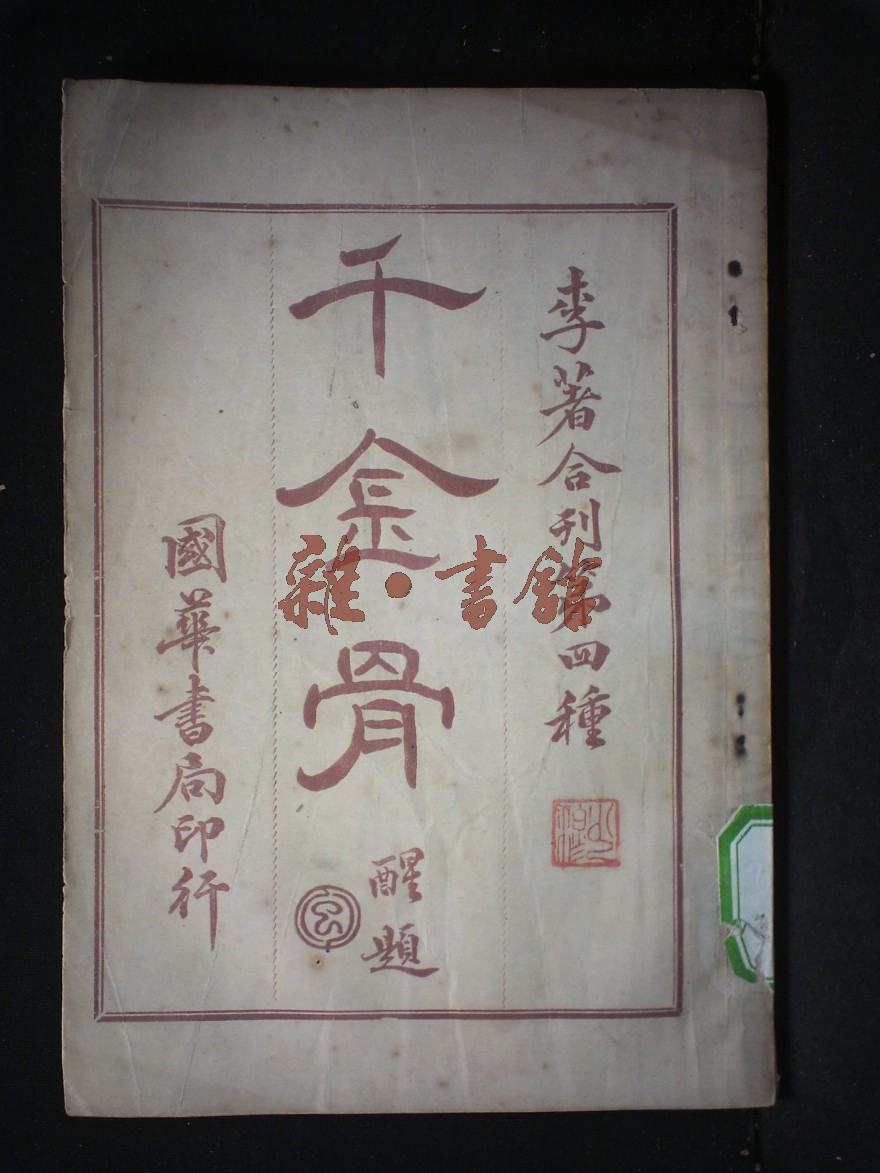 李著合刊第四種
千金骨
醒題
國華書局印行
雜·書館